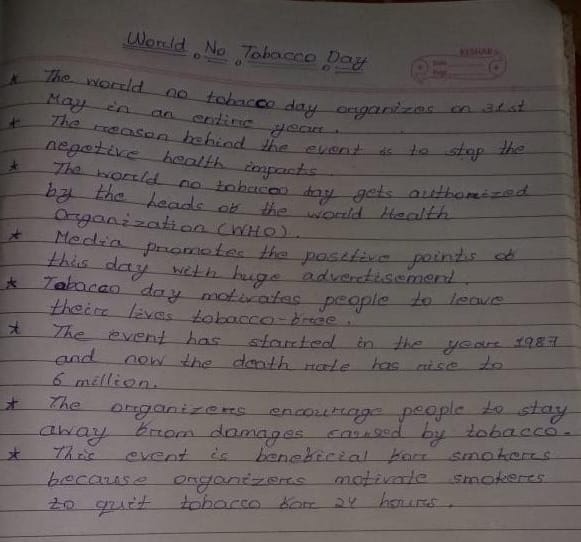 World No Tobacco Day
KESHAR
Date
Page
* The world no tobacco day organizes on 31st
May in an entire year.
* The reason behind the event is to stop the
negetive health impacts.
* The world no tobacco day gets authorized
by the heads of the world Health
Organization (WHO).
* Media promotes the positive points of
this day with huge advertisement.
* Tobacco day motivates people to leave
their lives tobacco-free.
* The event has started in the year 1987
and now the death rate has rise to
6 million.
* The organizers encourage people to stay
away from damages caused by tobacco.
* This event is beneficial for smokers
because organizers motivate smokers
to quit tobacco for 24 hours.